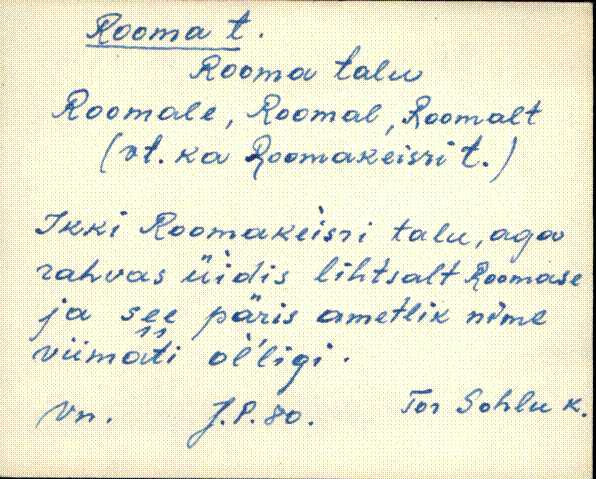 Rooma t.
Rooma talu
Roomale, Roomal, Roomalt
(vt. ka Roomakeisri t.)
Ikki Roomakeisri talu, aga
rahvas üidis lihtsalt Roomase
ja see päris ametlik nime
viimäti ol'ligi.
Vn. J.P. 80. Tor Sohlu k.